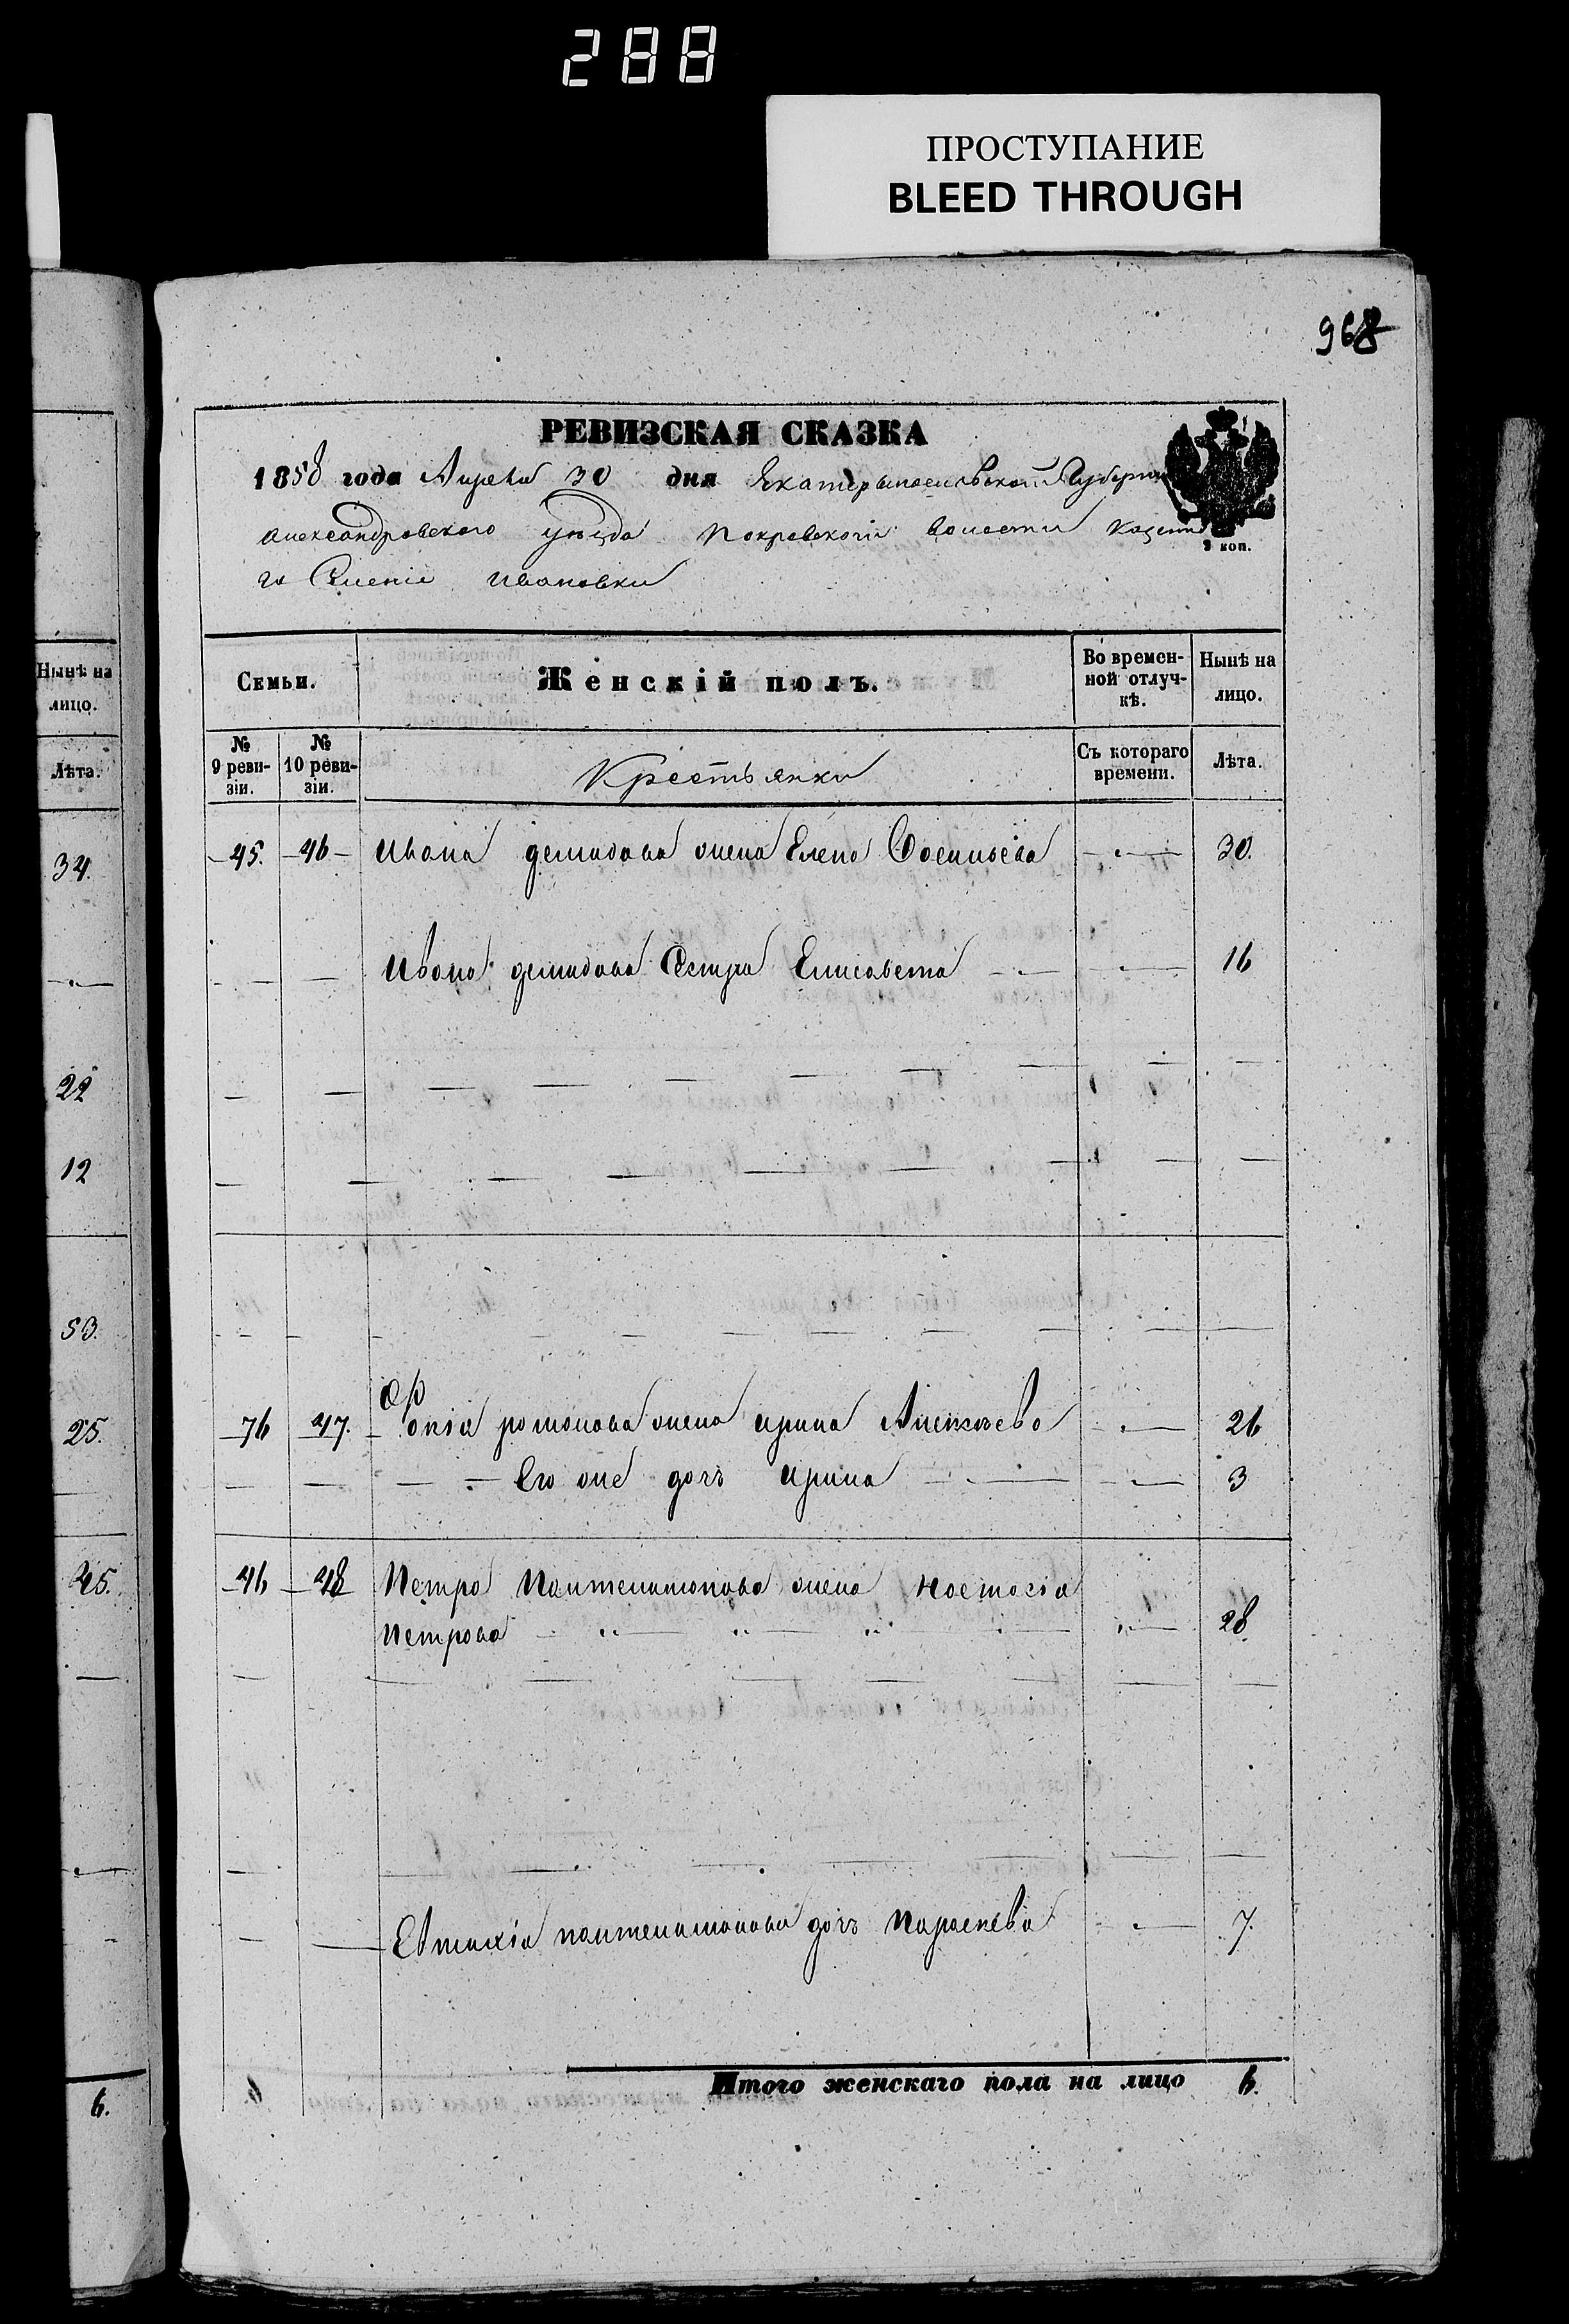 288
ПРОСТУПАНИЕ
BLEED THROUGH
968
РЕВИЗСКАЯ СКАЗКА
1858 года Апреля 30 дня Екатеринословской Губерни
Александровского уезда Покровской волости Казенна
го Селенія Ивановки
Нынѣ на лицо.
Лѣта.
34.
22
12
53.
25.
45.
6.
Семьи. Женскій полъ. Во времен-ной отлуч-кѣ. Нынѣ на лицо.
№ 9 реви-зіи. № 10 реви-зіи. Крестьянки Съ котораго времени. Лѣта.
45. 46 Ивана демидова жена Елена 30.
Ивана демидова Сестра Елисавета 16
76 47. романова жена ирина Алексѣева 26
Его же дочь Ирина 3
46 48 Петра Пантелимонова жена Настасія
Петрова 28
Евтихія пантелимонова дочь Параскева 7.
Итого женскаго пола на лицо 6.
2 коп.